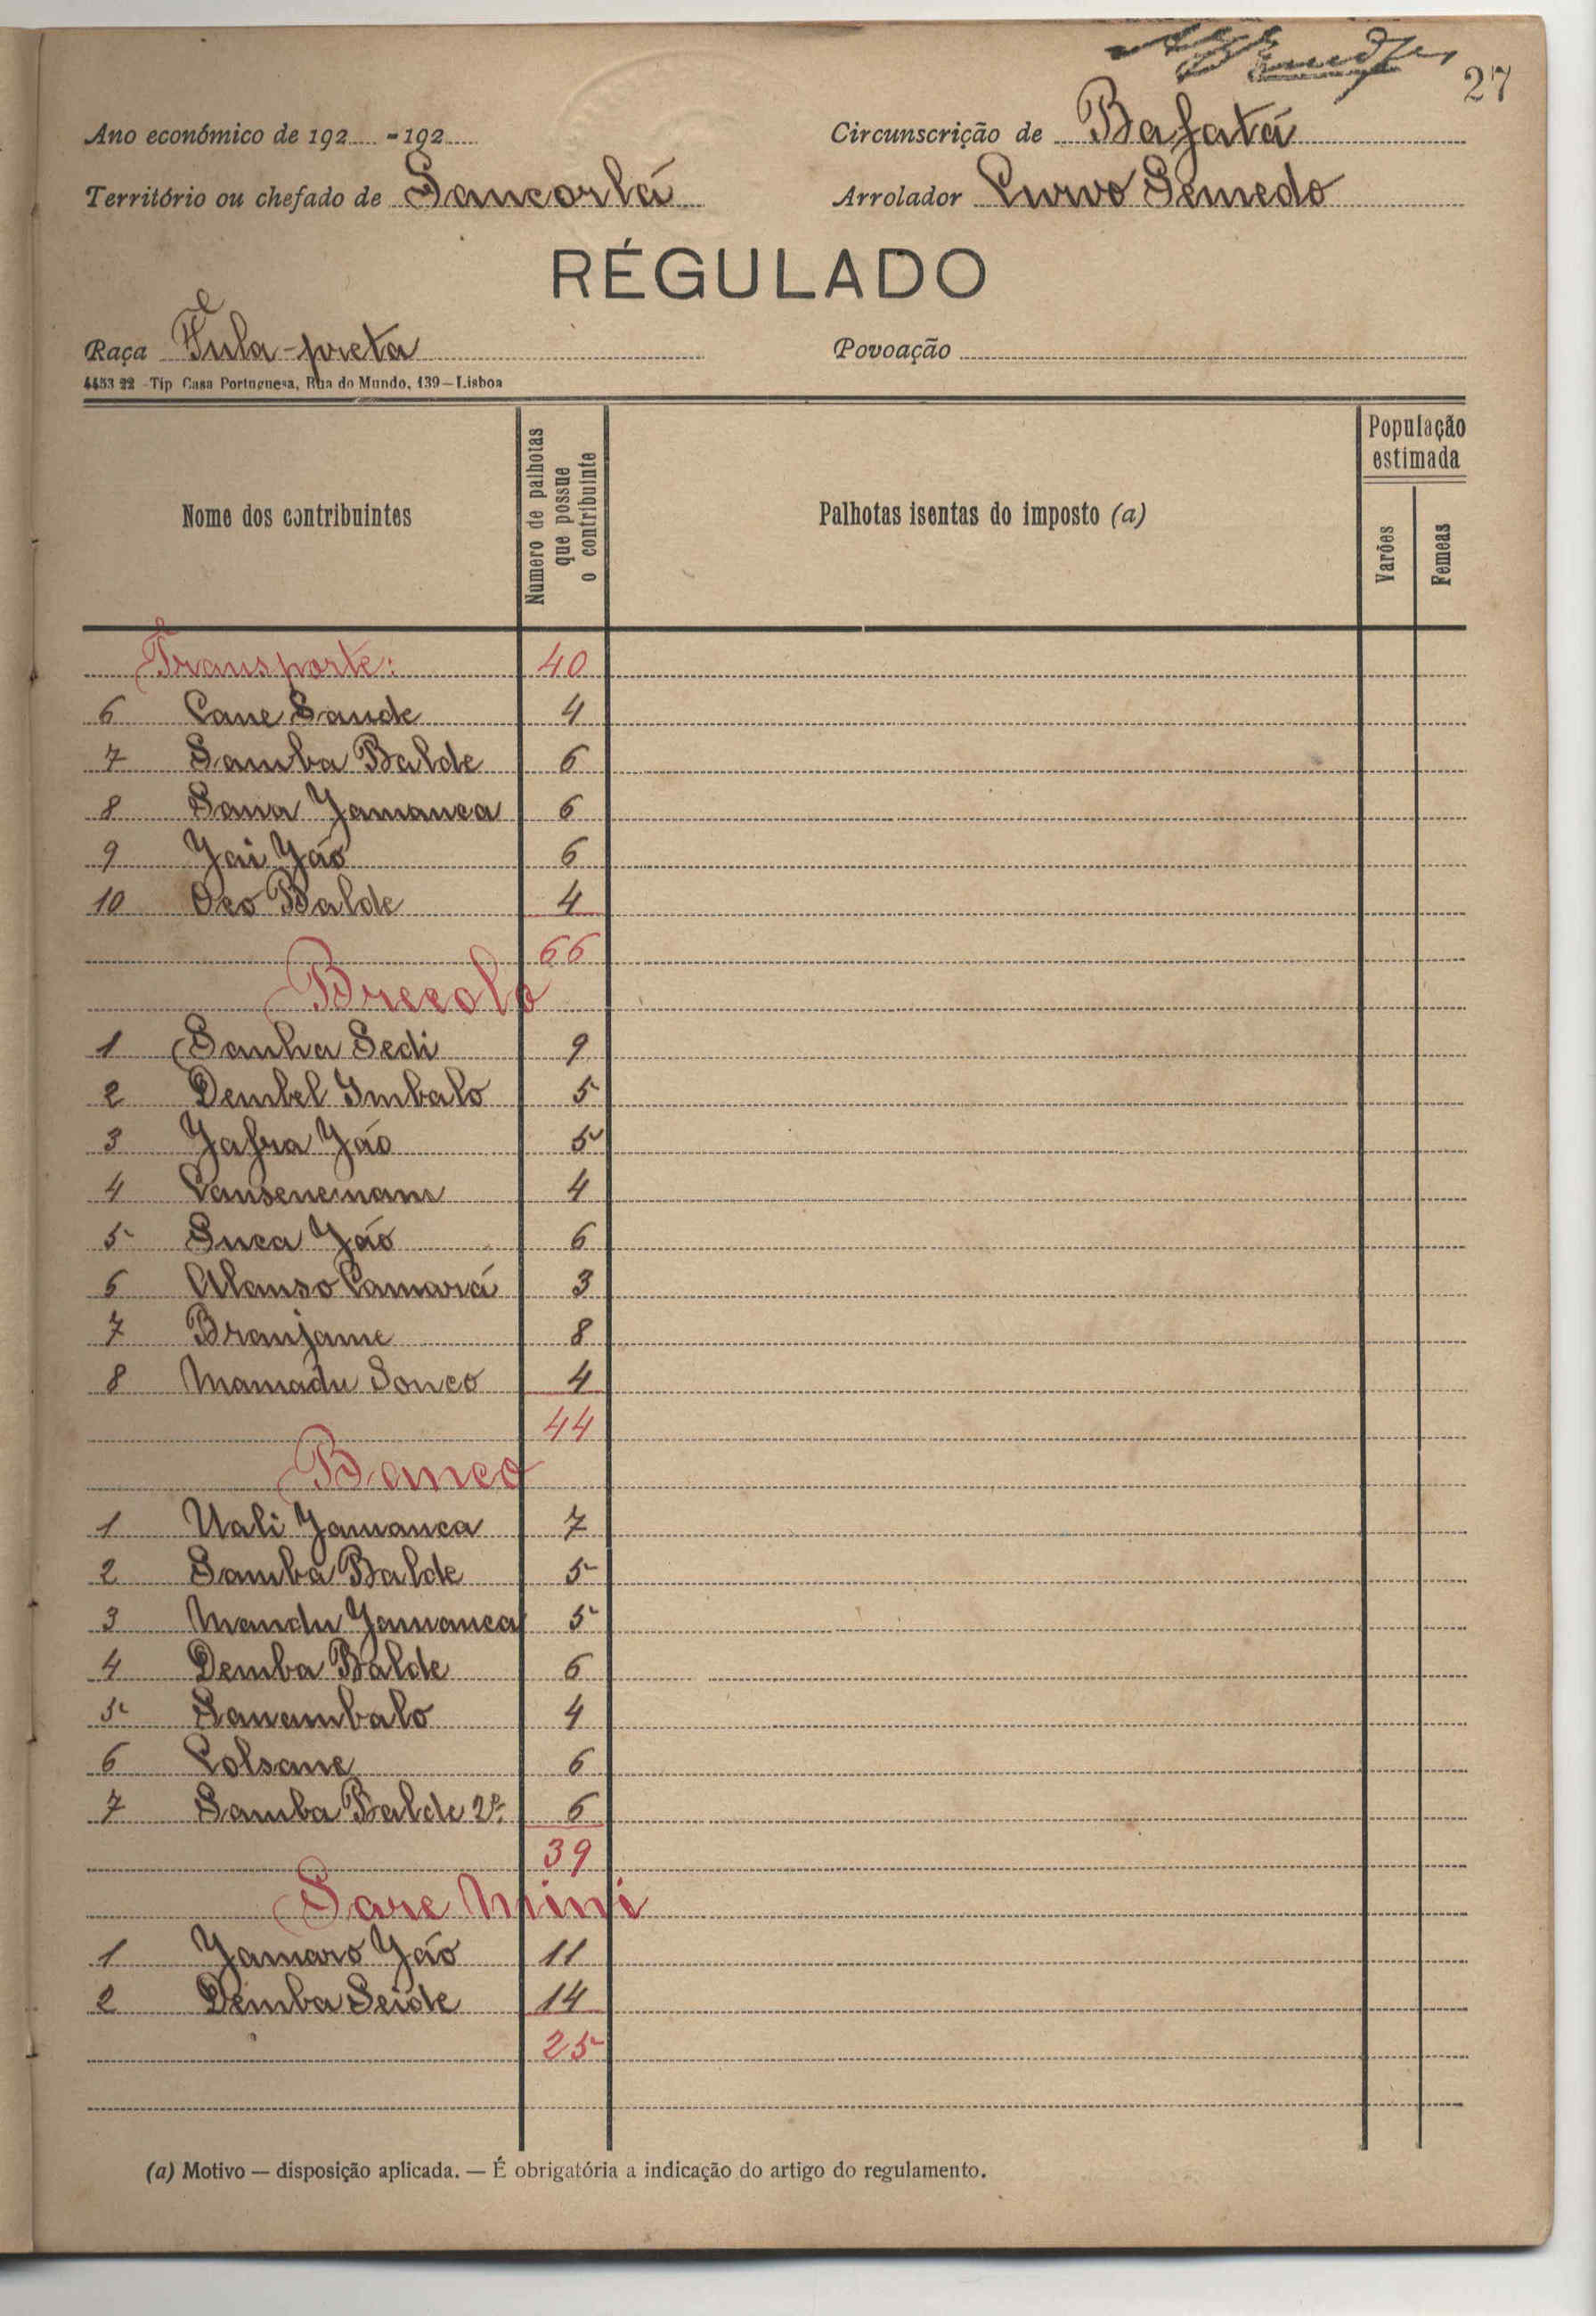 27
Ano económico de 192 - 192 Circunscrição de Bafatá
Território ou chefado de Sancorlá Arrolador Curvo Semedo
RÉGULADO
Raça Fula-preta Povoação
4453 22 - Tip Casa Portuguesa, Rua do Mundo, 139-Lisboa
Nome dos contribuintes Numero de palhotas que possue o contribuinte Palhotas isentas do imposto (a) População estimada Varões Femeas
Transporte: 40
6 Cane Sande 4
7 Samba Balde 6
8 Sana Jamanca 6
9 Jai Jáo 6
10 Oco Balde 4
66
Brecolo
1 Sanha Sedi 9
2 Dembel Imbalo 5
3 Jafra Jáo 5
4 4
5 Suca Jáo 6
6 Alanso Camará 3
7 Branjame 8
8 Mamadu Sonco 4
44
Banco
1 Uali Jamanca 7
2 Samba Balde 5
3 Mandu Jamanca 5
4 Demba Balde 6
5 Sanambalo 4
6 Colsane 6
7 Samba Balde 2º 6
39
Sare Mini
1 Jamaro Jáo 11
2 Demba Seide 14
25
(a) Motivo — disposição aplicada. — É obrigatória a indicação do artigo do regulamento.